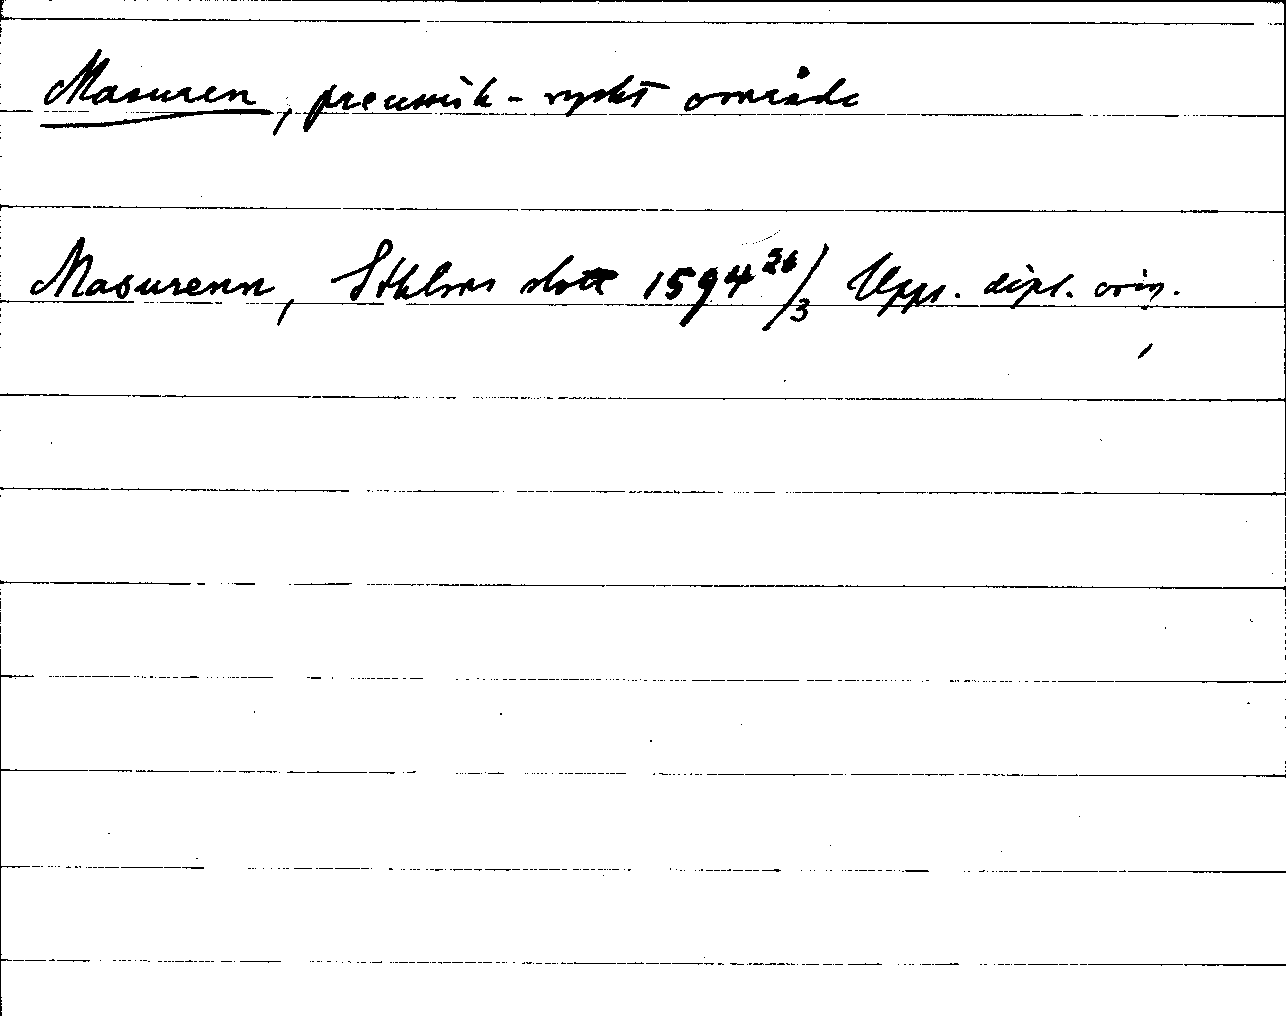 Masuren, preussisk-ryskt område
Masurenn, Sthlms slott 1594 26/3 Upps. dipl. orig.